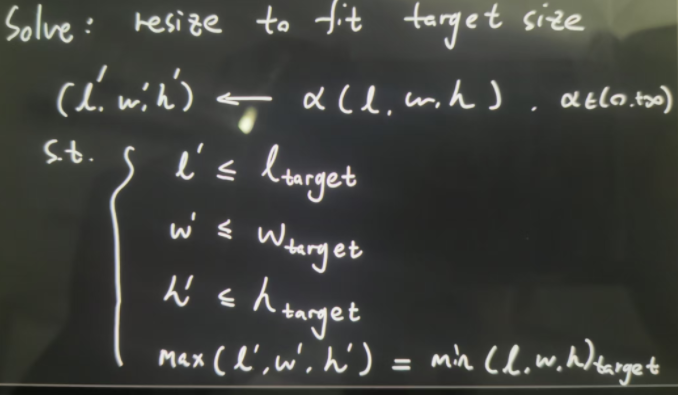 Solve: resize to fit target size
(l', w', h') ← α(l, w, h). α∈(0,+∞)
s.t. { l' ≤ l_target
w' ≤ w_target
h' ≤ h_target
max(l', w', h') = min(l, w, h)_target